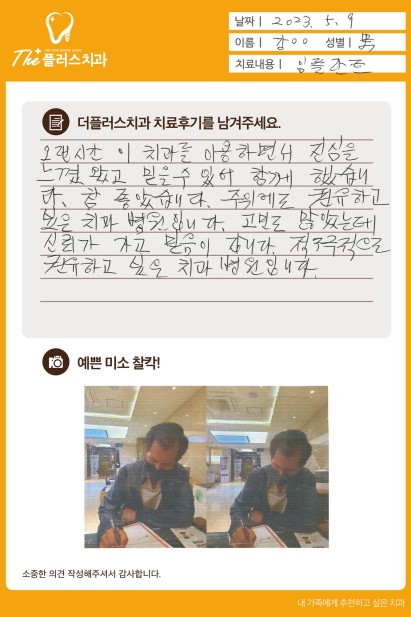 The+ 플러스치과
날짜 | 2023. 5. 9
이름 | 강○○ 성별 |
치료내용 | 임플란트
더플러스치과 치료후기를 남겨주세요.
오랜시간 이 치과를 이용하면서 진심을
느껴 왔고 믿을수 있어 함께 했습니
다. 참 좋았습니다. 주위에도 권유하고
싶은 치과 병원입니다. 고민도 많았는데
신뢰가 가고 믿음이 갑니다. 적극적으로
권유하고 싶은 치과 병원입니다.
예쁜 미소 찰칵!
소중한 의견 작성해주셔서 감사합니다.
내 가족에게 추천하고 싶은 치과